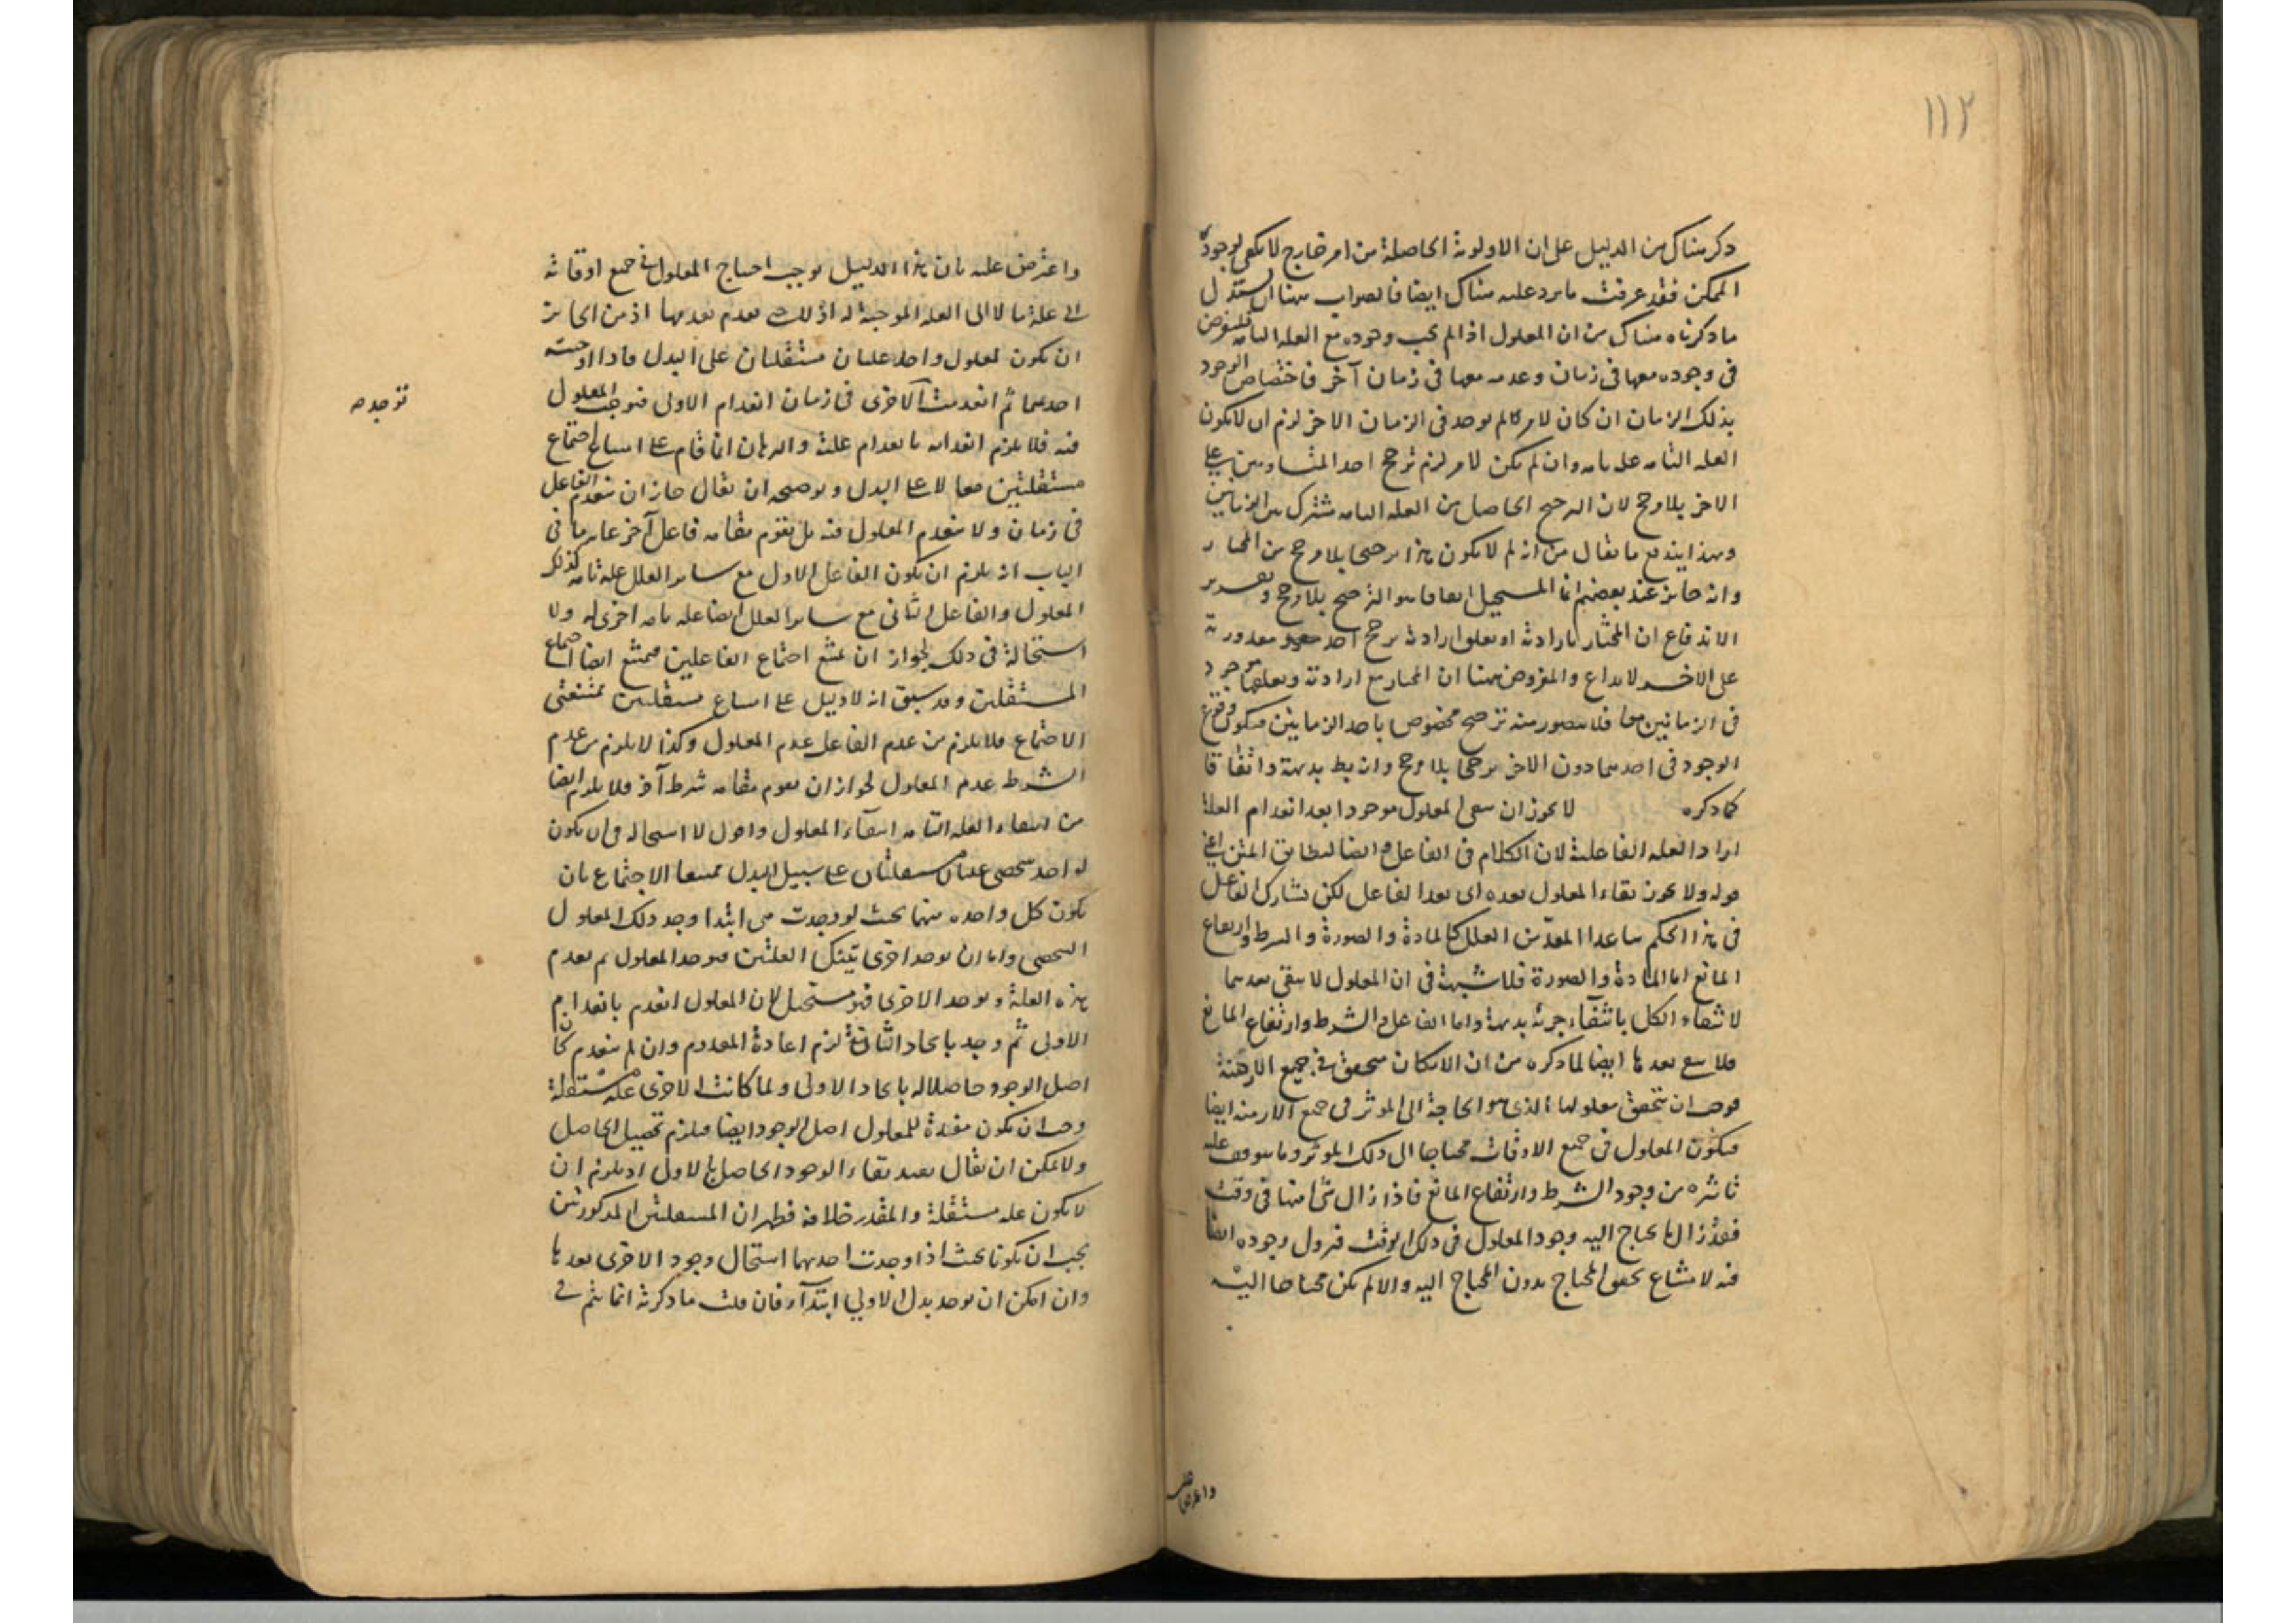 ١١٢
ذكر هناك من الدليل على ان الاولوية الحاصلة من امر خارج لا يكفى لوجود
الممكن فقد عرفت ما يرد عليه هناك ايضا فالصواب ههنا ان يستدل
ما ذكرناه هناك من ان المعلول اذا لم يجب وجوده مع العلة التامة فلنفرض
فى وجوده معها فى زمان وعدمه معها فى زمان آخر فاختصاص الوجود
بذلك الزمان ان كان لامر لم يوجد فى الزمان الاخر لزم ان لا يكون
العلة التامة علة تامة وان لم يكن لامر لزم ترجح احد المتساويين على
الاخر بلا مرجح لان الترجيح الحاصل من العلة التامة مشترك بين الزمانين
وبهذا يندفع ما يقال من انه لم لا يكون هذا ترجيحا بلا مرجح من المختار
وانه جائز عند بعضهم انما المستحيل اتفاقا هو الترجح بلا مرجح وتقرير
الاندفاع ان المختار بارادته او بتعلق ارادته يرجح احد مقدوريه
على الاخر لا بداع والمفروض ههنا ان المختار مع ارادته وتعلقها موجود
فى الزمانين معا فلا يتصور منه ترجيح مخصوص باحد الزمانين فيكون وقوع
الوجود فى احدهما دون الاخر ترجحا بلا مرجح وانه بط بديهة واتفاقا
كما ذكره لا يجوز ان يبقى المعلول موجودا بعد انعدام العلة
اراد العلة الفاعلية لان الكلام فى الفاعل وايضا ليطابق المتن اعنى
قوله ولا يجوز بقاء المعلول بعده اى بعد الفاعل لكن يشارك الفاعل
فى هذا الحكم ما عدا المعدّ من العلل كالمادة والصورة والشرط وارتفاع
المانع اما المادة والصورة فلا شبهة فى ان المعلول لا يبقى بعدهما
لانتفاء الكل بانتفاء جزئه بديهة واما الفاعل والشرط وارتفاع المانع
فلا يبقى بعدها ايضا لما ذكره من ان الامكان متحقق فى جميع الازمنة
فوجب ان يتحقق معلولها الذى هو الحاجة الى المؤثر فى جميع الازمنة ايضا
فيكون المعلول فى جميع الاوقات محتاجا الى ذلك المؤثر وما يتوقف عليه
تاثيره من وجود الشرط وارتفاع المانع فاذا زال شئ منها فى وقت
فقد زال ما يحتاج اليه وجود المعلول فى ذلك الوقت فيزول وجوده ايضا
فيه لامتناع تحقق المحتاج بدون المحتاج اليه والا لم يكن محتاجا اليه
واعترض عليه
واعترض عليه بان هذا الدليل يوجب احتياج المعلول فى جميع اوقاته
الى علة ما لا الى العلة الموجبة له اذ ذاك بعدم بعدمها اذ من الجائز
ان يكون لمعلول واحد علتان مستقلتان على البدل فاذا اوجبته
احدهما ثم انعدمت الاخرى فى زمان انعدام الاولى فتوجب المعلول
توجده صه
فيه فلا يلزم انعدامه بانعدام علته والبرهان انما قام على امتناع اجتماع
مستقلتين معا لا على البدل وتوضيحه ان يقال جاز ان ينعدم الفاعل
فى زمان ولا ينعدم المعلول فيه بل يقوم مقامه فاعل آخر غاية ما فى
الباب انه يلزم ان يكون الفاعل الاول مع سائر العلل علة تامة لذلك
المعلول والفاعل الثانى مع سائر العلل ايضا علة تامة اخرى له ولا
استحالة فى ذلك لجواز ان يمتنع اجتماع الفاعلين فيمتنع ايضا اجتماع
المستقلتين وقد سبق انه لا دليل على امتناع مستقلتين ممتنعتى
الاجتماع فلا يلزم من عدم الفاعل عدم المعلول وكذا لا يلزم من عدم
الشرط عدم المعلول لجواز ان يقوم مقامه شرط آخر فلا يلزم ايضا
من انتفاء العلة التامة انتفاء المعلول واقول لا استحالة فى ان يكون
لواحد شخصى علتان مستقلتان على سبيل البدل ممتنعا الاجتماع بان
يكون كل واحدة منهما بحيث لو وجدت هى ابتداء وجد ذلك المعلول
الشخصى واما ان يوجد احدى تينك العلتين فيوجد المعلول ثم يعدم
هذه العلة ويوجد الاخرى فهو مستحيل لان المعلول انعدم بانعدام
الاولى ثم وجد بايجاد الثانية لزم اعادة المعدوم وان لم ينعدم كان
اصل الوجود حاصلا له بايجاد الاولى ولما كانت الاخرى علة مستقلة
وجب ان يكون مفيدة للمعلول اصل الوجود ايضا فيلزم تحصيل الحاصل
ولا يمكن ان يقال يفيد بقاء الوجود الحاصل بالاول اذ يلزم ان
لا يكون علة مستقلة والمقدر خلافه فظهر ان المستقلتين المذكورتين
يجب ان يكونا بحيث اذا وجدت احدهما استحال وجود الاخرى بعدها
وان امكن ان يوجد بدل الاولى ابتداء فان قلت ما ذكرته انما يتم فى